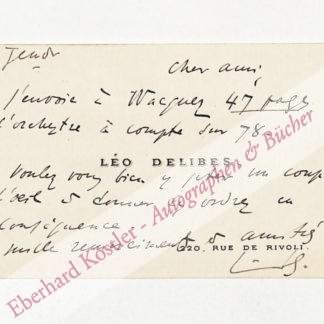 Jeudi
Cher ami,
J'envoie à Wacquez 47 pages
d'orchestre à compte sur 78.
LÉO DELIBES
Voulez vous bien y jeter un coup
d'œil & donner vos ordres en
conséquence
mille remerciements & amitiés
220, RUE DE RIVOLI.
Eberhard Köstler - Autographen & Bücher